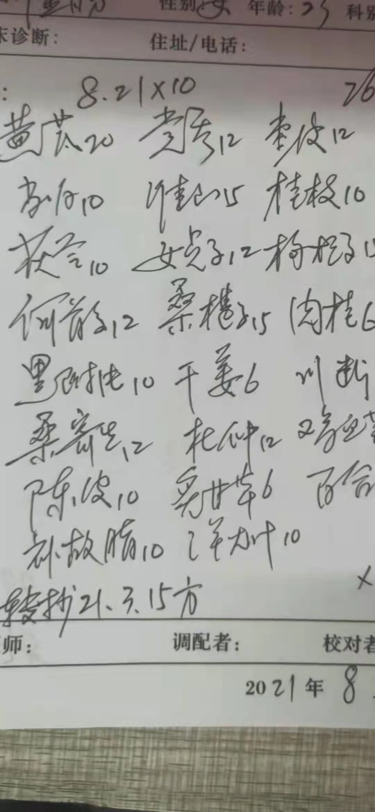 性别 女 年龄: 23 科别
床诊断: 住址/电话:
: 8.21×10 26
黄芪20 党参12 枣皮12
淮山15 桂枝10
茯苓10 女贞子12 枸杞子1
何首乌12 桑椹子15 肉桂6
黑附片10 干姜6 川断
桑寄生12 杜仲12
陈皮10 炙甘草6 百合
补故脂10 泽泻10
转抄21.3.15方
师: 调配者: 校对者
2021年 8